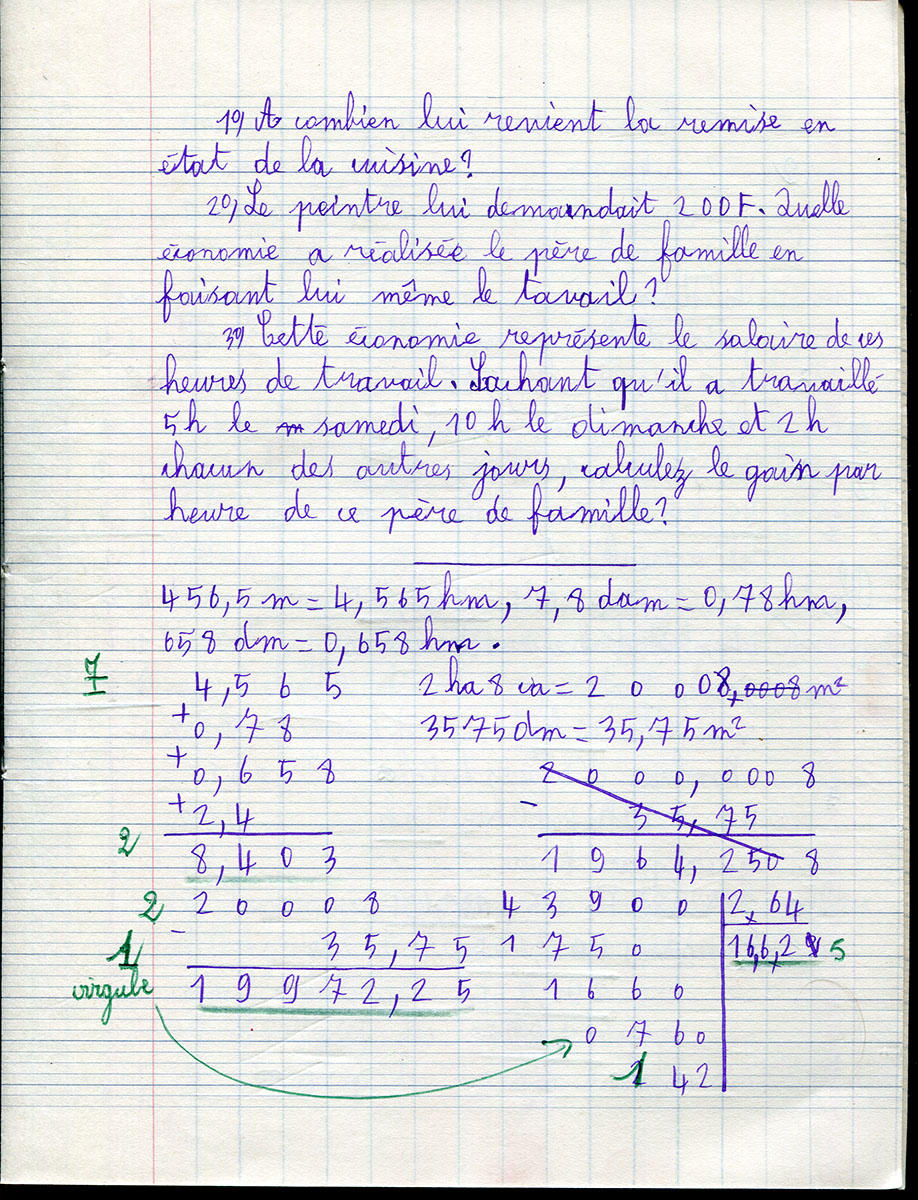 1º) A combien lui revient la remise en
état de la cuisine?
2º) Le peintre lui demandait 200F. Quelle
économie a réalisée le père de famille en
faisant lui même le tavail?
3º) Cette économie représente le salaire de ces
heures de travail. Sachant qu'il a travaillé
5h le samedi, 10h le dimanche et 2h
chacun des autres jours, calculez le gain par
heure de ce père de famille?
456,5 m = 4,565 hm, 7,8 dam = 0,78 hm,
658 dm = 0,658 hm.
7
4,565
2 ha 8 ca = 20008,0008 m²
+0,78
3575 dm = 35,75 m²
+0,658
2000,0008
+2,4
- 35,75
2
8,403
1964,2508
2
20008
43900
2,64
1
- 35,75
1750
16,6,2 5
virgule
19972,25
1660
0760
142